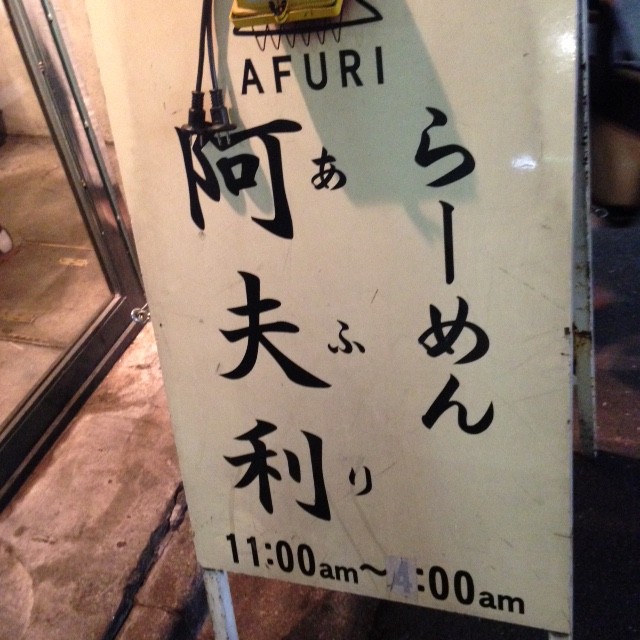 AFURI
らーめん
阿夫利
あふり
11:00am〜4:00am